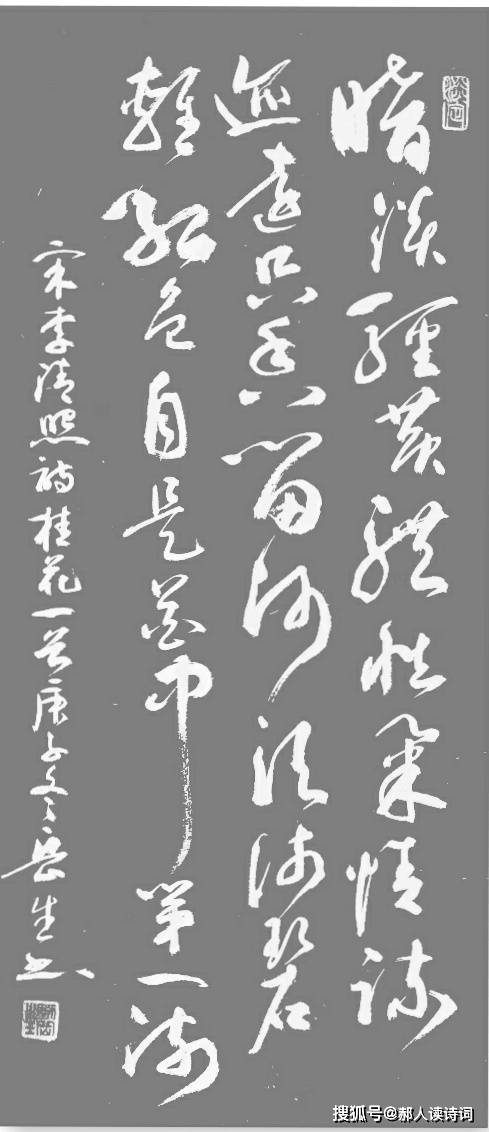 暗淡輕黃體性柔情疏
迹遠只香留何須淺碧
輕紅色自是花中第一流
宋李清照詩桂花一首庚子冬岳生书
搜狐号@郝人读诗词